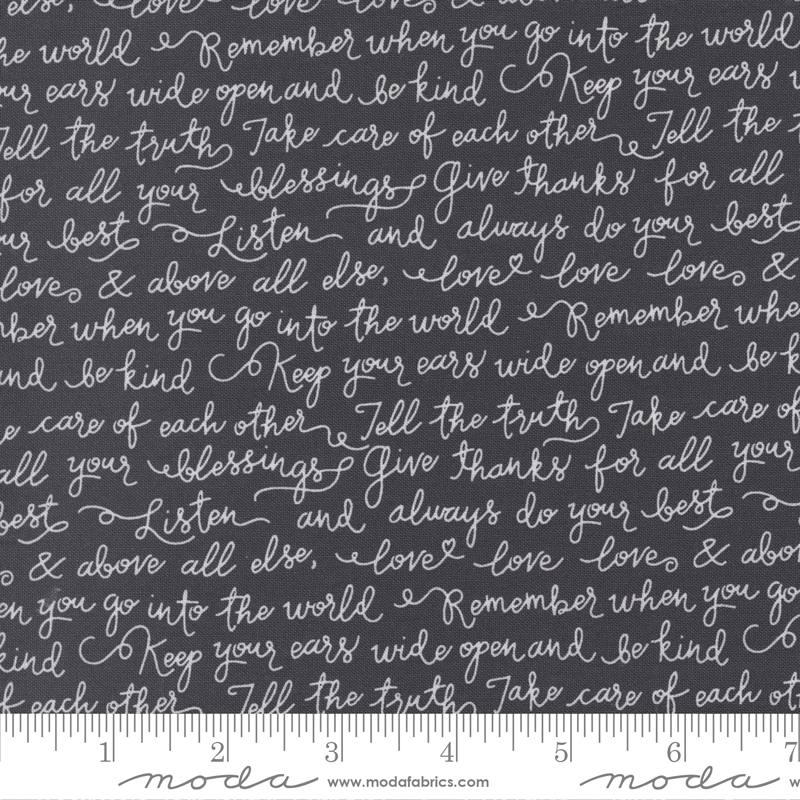 else, love love love & above all else,
he world Remember when you go into the world
ur ears wide open and be kind Keep your ears w
Tell the truth Take care of each other Tell the t
for all your blessings Give thanks for all
ur best Listen and always do your best
love & above all else, love love love &
mber when you go into the world Remember whe
and be kind Keep your ears wide open and be k
e care of each other Tell the truth Take care of
all your blessings Give thanks for all your
best Listen and always do your best
& above all else, love love love & abov
en you go into the world Remember when you go
kind Keep your ears wide open and be kind
of each other Tell the truth Take care of each ot
1 2 3 4 5 6 7
moda www.modafabrics.com moda w